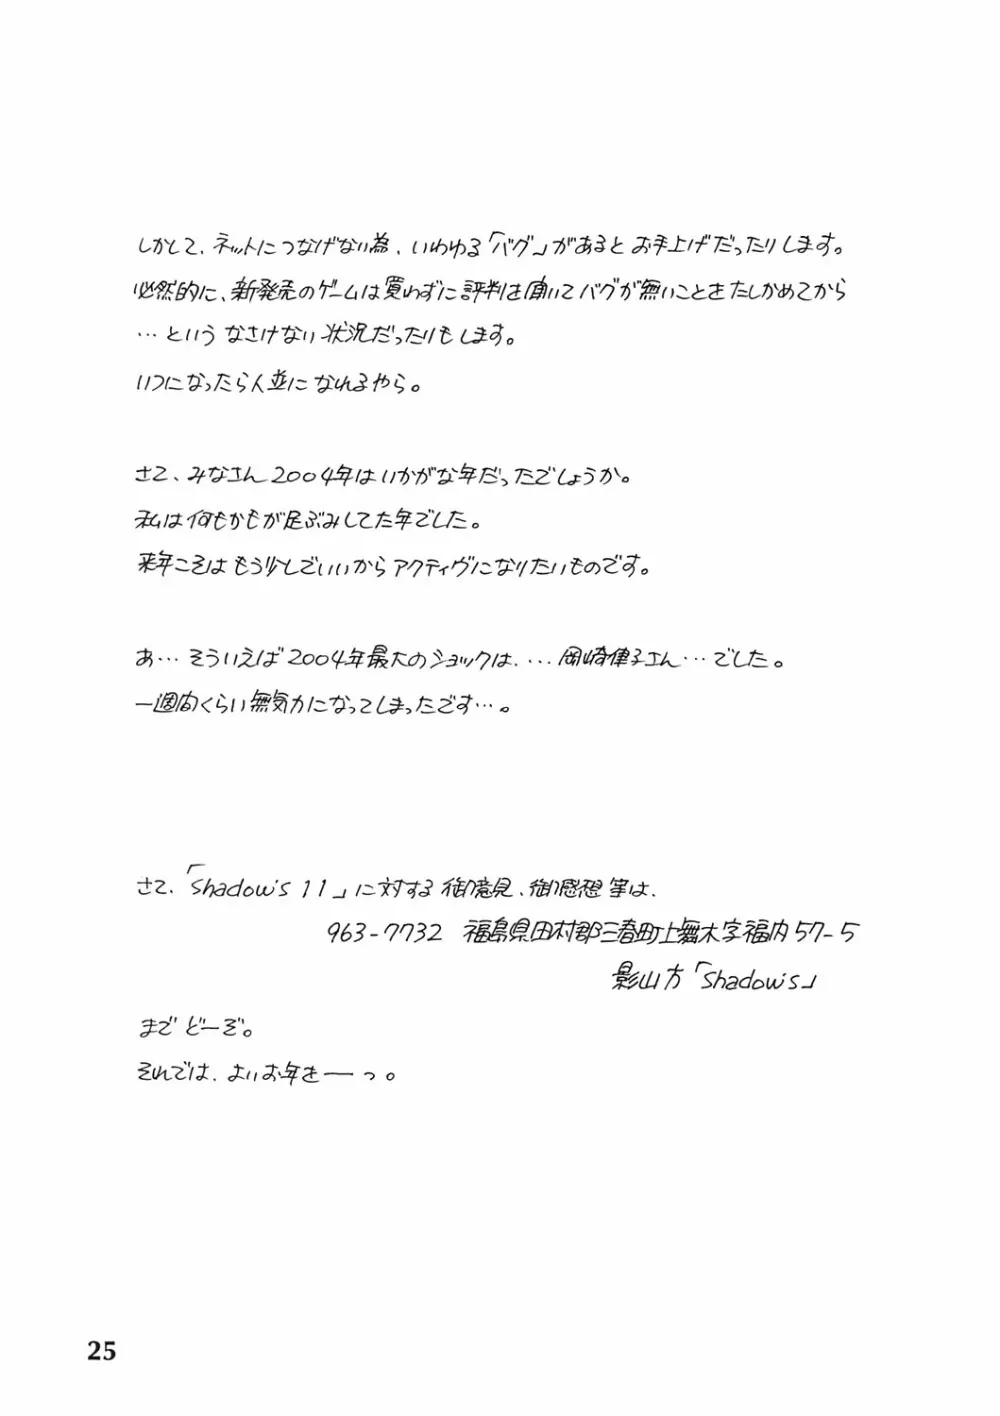 しかして、ネットにつなげない為、いわゆる「バグ」があるとお手上げだったりします。
必然的に、新発売のゲームは買わずに評判を聞いてバグが無いことをたしかめてから
…というなさけない状況だったりもします。
いつになったら人並になれるやら。
さて、みなさん2004年はいかがな年だったでしょうか。
私は何もかもが足ぶみしてた年でした。
来年こそはもう少しでいいからアクティヴになりたいものです。
あ…そういえば2004年最大のショックは、…岡崎律子さん…でした。
一週間くらい無気力になってしまったです…。
さて、「Shadow's 11」に対する御意見、御感想等は、
963-7732 福島県田村郡三春町上舞木字福内57-5
影山方「Shadow's」
までどーぞ。
それでは、よいお年を――っ。
25